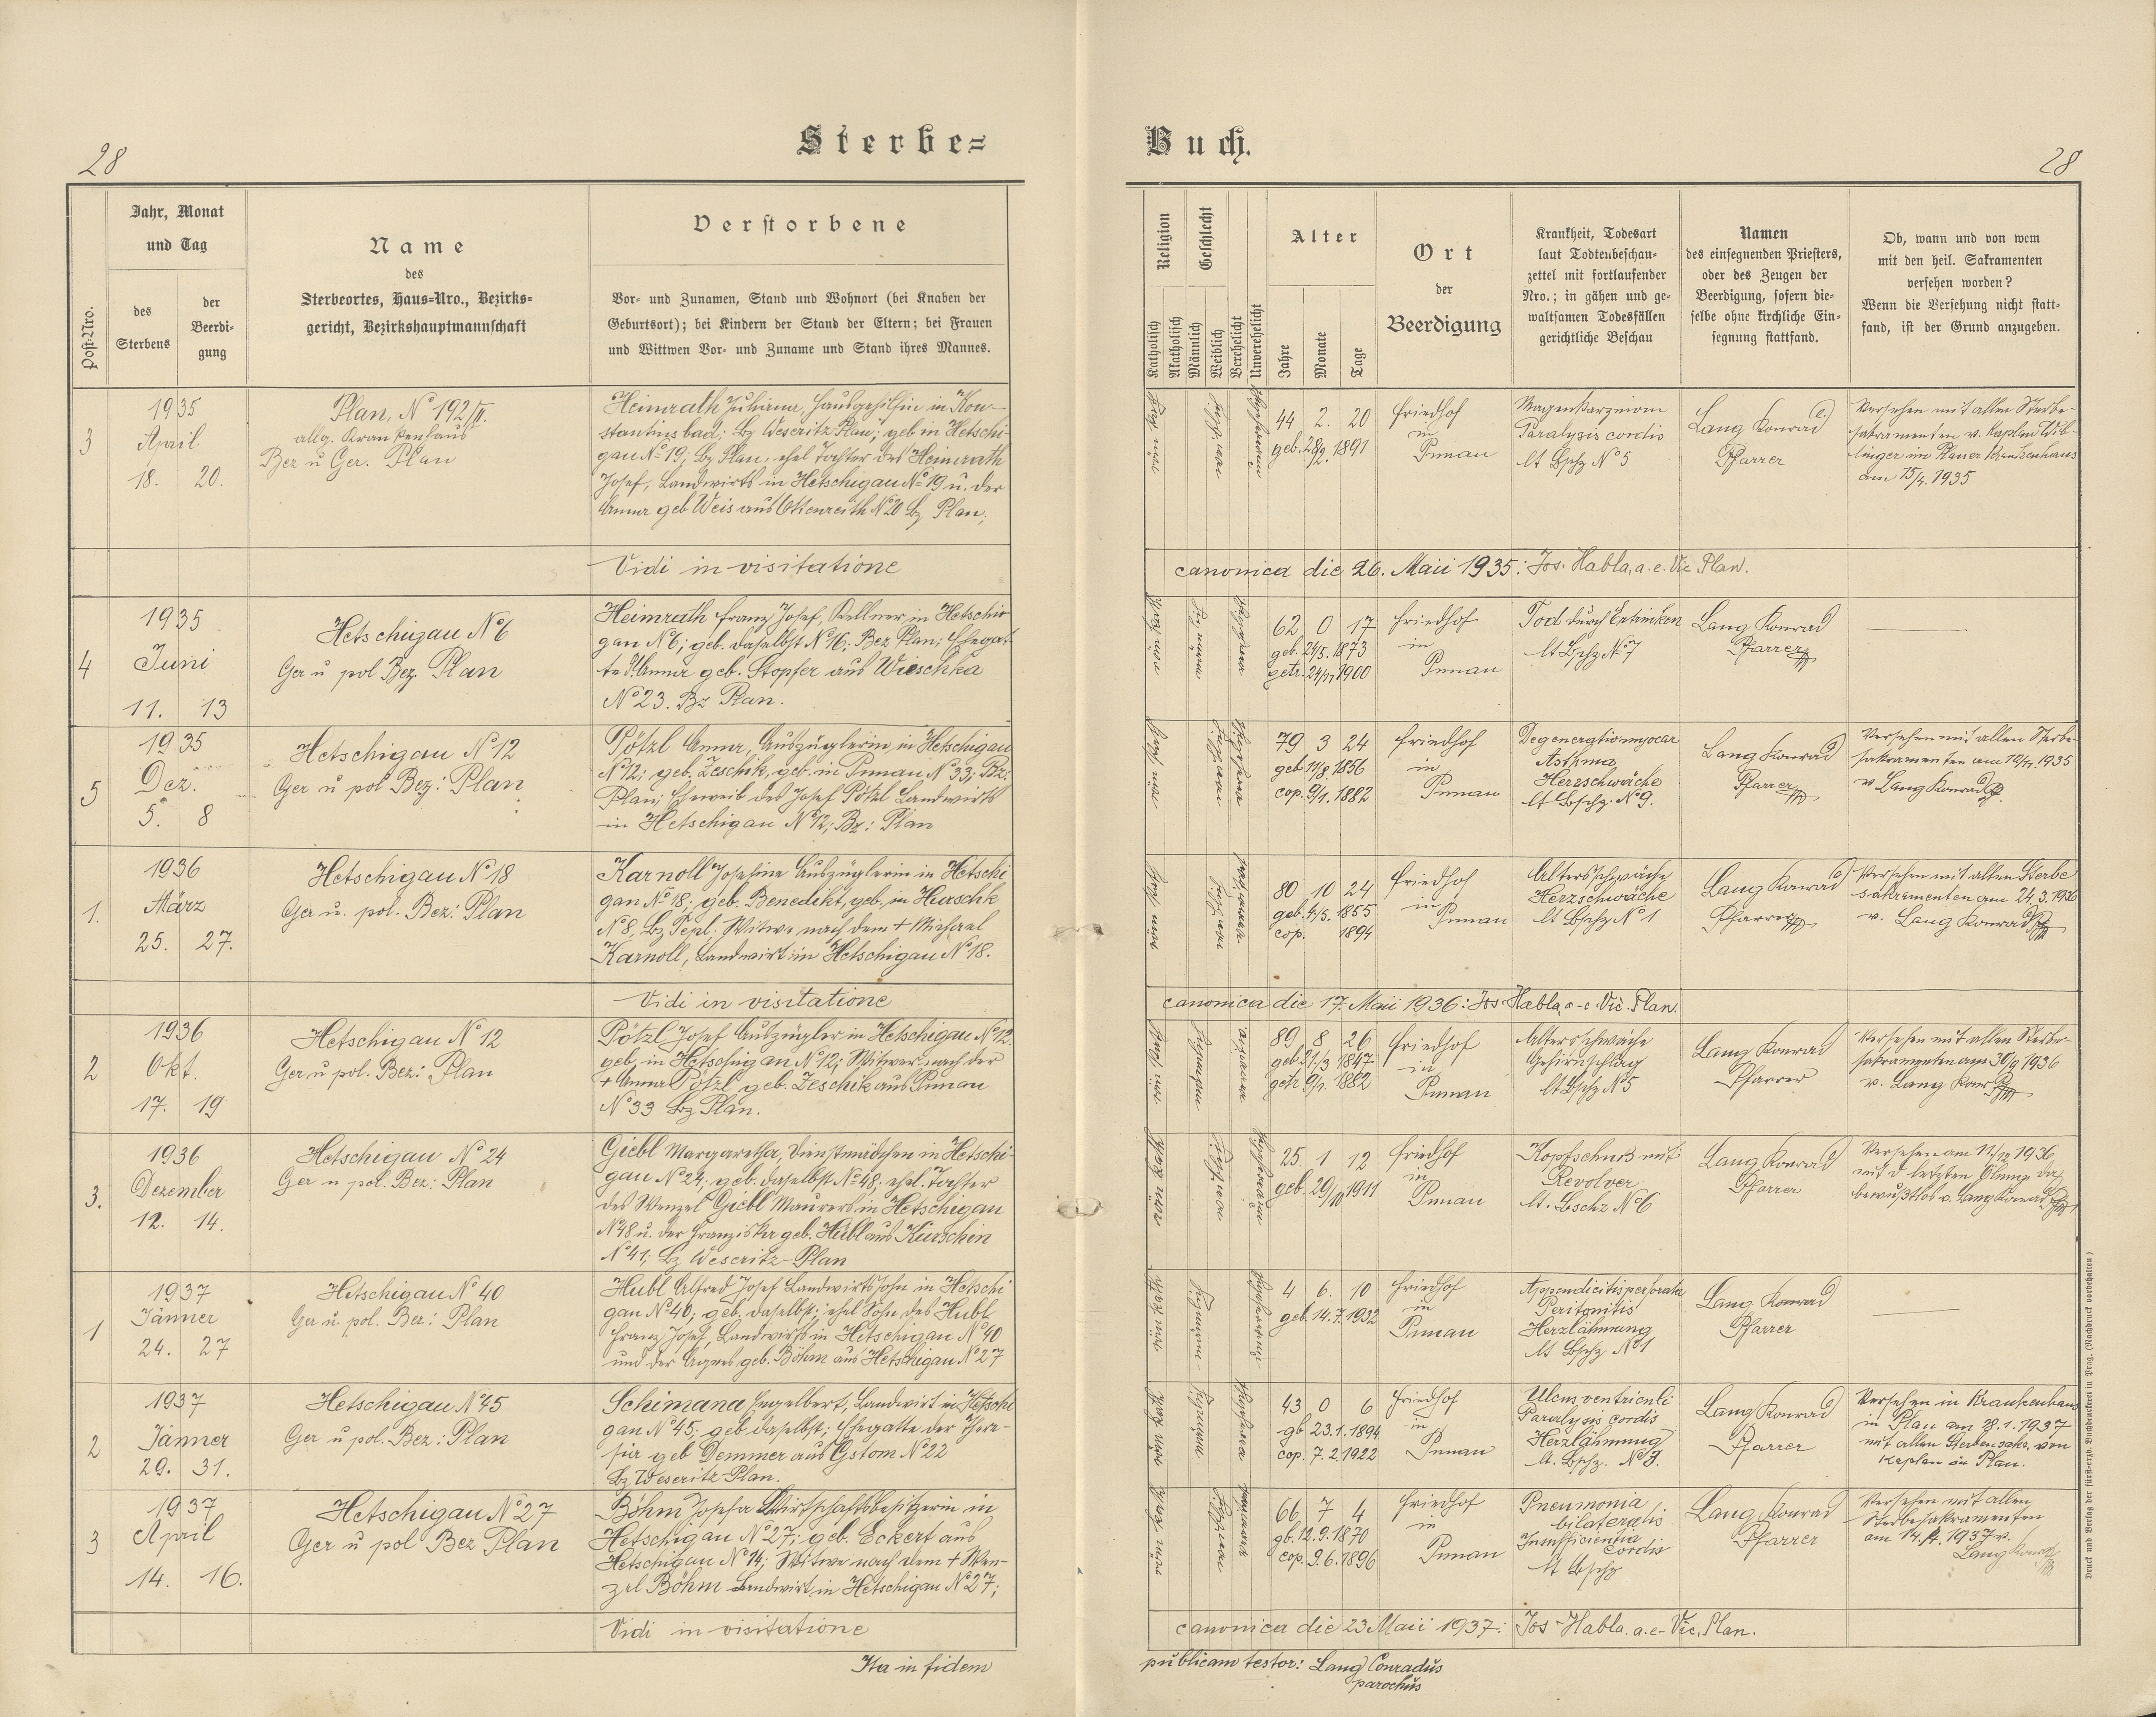 28
Sterbe=
Buch.
28
Post-Nro.
Jahr, Monat
und Tag
des
Sterbens
der
Beerdi-
gung
Name
des
Sterbeortes, Haus=Nro., Bezirks=
gericht, Bezirkshauptmannschaft
Verstorbene
Vor- und Zunamen, Stand und Wohnort (bei Knaben der
Geburtsort); bei Kindern der Stand der Eltern; bei Frauen
und Wittwen Vor- und Zuname und Stand ihres Mannes.
Religion
Katholisch
Akatholisch
Geschlecht
Männlich
Weiblich
Verehelicht
Unverehelicht
Alter
Jahre
Monate
Tage
Ort
der
Beerdigung
Krankheit, Todesart
laut Todtenbeschau-
zettel mit fortlaufender
Nro.; in gähen und ge-
waltsamen Todesfällen
gerichtliche Beschau
Namen
des einsegnenden Priesters,
oder des Zeugen der
Beerdigung, sofern die-
selbe ohne kirchliche Ein-
segnung stattfand.
Ob, wann und von wem
mit den heil. Sakramenten
versehen worden?
Wenn die Versehung nicht statt-
fand, ist der Grund anzugeben.
3
1935
April
18. 20.
Plan, No 192/II.
allg. Krankenhaus
Bez u Ger. Plan
Heimrath Juliana, Hausgehilfin in Kon-
stantinsbad; Bz Weseritz-Plan; geb in Hetschi-
gau No 19; Bz Plan; ehel Tochter des Heimrath
Josef, Landwirts in Hetschigau No 19 u. der
Anna geb Weis aus Ottenreith No 20 Bz Plan;
44 2. 20
geb. 28/2. 1891
Friedhof
in
Punnau
Magenkarzinom
Paralysis cordis
lt Bschz No 5
Lang Konrad
Pfarrer
Versehen mit allen Sterbe-
sakramenten v. Kaplan Wib-
linger im Planer Krankenhaus
am 15/4. 1935
Vidi in visitatione
canonica die 26. Maii 1935: Jos. Habla, a. e. Vic. Plan.
4
1935
Juni
11. 13
Hetschigau No 6
Ger u pol Bez. Plan
Heimrath Franz Josef, Kellner, in Hetschi-
gau No 6; geb. daselbst No 16; Bez Plan; Ehegat-
te d. Anna geb. Stopfer aus Wieschka
No 23. Bz Plan.
62 0 17
geb. 25/5. 1873
getr. 24/11 1900
Friedhof
in
Punnau
Tod durch Ertrinken
lt Bschz No 7
Lang Konrad
Pfarrer
5
1935
Dez.
5. 8
Hetschigau No 12
Ger u pol Bez: Plan
Pötzl Anna, Auszüglerin in Hetschigau
No 12; geb. Zeschik, geb. in Punnau No 33; Bz:
Plan; Eheweib des Josef Pötzl Landwirts
in Hetschigau No 12; Bz: Plan
79 3 24
geb 11/8 1856
cop. 9/1. 1882
Friedhof
in
Punnau
Degeneratio myocar
Asthma,
Herzschwäche
lt Bschz. No 9.
Lang Konrad
Pfarrer
Versehen mit allen Sterbe-
sakramenten am 19/11. 1935
v Lang Konrad
1.
1936
März
25. 27.
Hetschigau No 18
Ger u. pol. Bez: Plan
Karnoll Josefine Auszüglerin in Hetschi
gau No 18; geb. Benedikt, geb. in Hurschk
No 8, Bz Tepl. Witwe nach dem + Michael
Karnoll, Landwirt in Hetschigau No 18.
80 10 24
geb. 4/5. 1855
cop. 1894
Friedhof
in
Punnau
Altersschwäche
Herzschwäche
lt Bschz No 1
Lang Konrad
Pfarrer
Versehen mit allen Sterbe
sakramenten am 24. 3. 1936
v. Lang Konrad
Vidi in visitatione
canonica die 17. Maii 1936: Jos Habla, a-e. Vic. Plan.
2
1936
Okt.
17. 19
Hetschigau No 12
Ger u pol. Bez: Plan
Pötzl Josef Auszügler in Hetschigau No 12.
geb. in Hetschigau No 12; Witwer nach der
+ Anna Pötzl geb. Zeschik aus Punnau
No 33 Bz Plan.
89 8 26
geb. 21/3 1847
getr. 9/1. 1882
Friedhof
in
Punnau
Altersschwäche
Gehirnschlag
lt Bschz No 5
Lang Konrad
Pfarrer
Versehen mit allen Sterbe-
sakramenten am 30/9 1936
v. Lang Konr
3.
1936
Dezember
12. 14.
Hetschigau No 24
Ger u pol. Bez: Plan
Giebl Margaretha, Dienstmädchen in Hetschi-
gau No 24; geb. daselbst No 48; ehel. Tochter
des Wenzel Giebl Maurers in Hetschigau
No 48 u. der Franziska geb. Hübl aus Kurschin
No 41; Bz Weseritz-Plan
25. 1 12
geb. 29/10 1911
Friedhof
in
Punnau
Kopfschuß mit
Revolver
lt. Bschz No 6
Lang Konrad
Pfarrer
Versehen am 11/12 1936
mit d letzten Ölung da
bewußtlos v. Lang Konrad
1
1937
Jänner
24. 27
Hetschigau No 40
Ger u. pol. Bez: Plan
Hubl Alfred Josef Landwirtssohn in Hetschi
gau No 40; geb. daselbst; ehel Sohn des Hubl
Franz Josef, Landwirts in Hetschigau No 40
und der Agnes geb. Böhm aus Hetschigau No 27
4 6. 10
geb. 14. 7. 1932
Friedhof
in
Punnau
Appendicitis perforata
Peritonitis
Herzlähmung
lt Bschz No 1
Lang Konrad
Pfarrer
2
1937
Jänner
29. 31.
Hetschigau No 45
Ger u pol. Bez: Plan
Schimana Engelbert, Landwirt in Hetschi
gau No 45; geb daselbst; Ehegatte der There-
sia geb Demmer aus Gstom No 22
Bz Weseritz-Plan.
43 0 6
gb 23. 1. 1894
cop. 7. 2. 1922
Friedhof
in
Punnau
Ulcus ventriculi
Paralysis cordis
Herzlähmung
lt. Bschz. No 3.
Lang Konrad
Pfarrer
Versehen in Krankenhaus
in Plan am 28. 1. 1937
mit allen Sterbesakr. von
Kaplan in Plan.
3
1937
April
14. 16.
Hetschigau No 27
Ger u pol Bez Plan
Böhm Josefa Wirtschaftsbesitzerin in
Hetschigau No 27; geb. Eckert aus
Hetschigau No 14; Witwe nach dem + Wen-
zel Böhm Landwirt in Hetschigau No 27;
66 7 4
gb. 12. 9. 1870
cop. 9. 6. 1896
Friedhof
in
Punnau
Pneumonia
bilateralis
Insufficientia
cordis
lt Bschz
Lang Konrad
Pfarrer
Versehen mit allen
Sterbesakramenten
am 14. 4. 1937 v.
Lang Konrad
Vidi in visitatione
canonica die 23 Maii 1937: Jos Habla. a. e- Vic. Plan.
Ita in fidem
publicam testor: Lang Conradus
parochus
Druck und Verlag der fürst-erzb. Buchdruckerei in Prag. (Nachdruck vorbehalten)